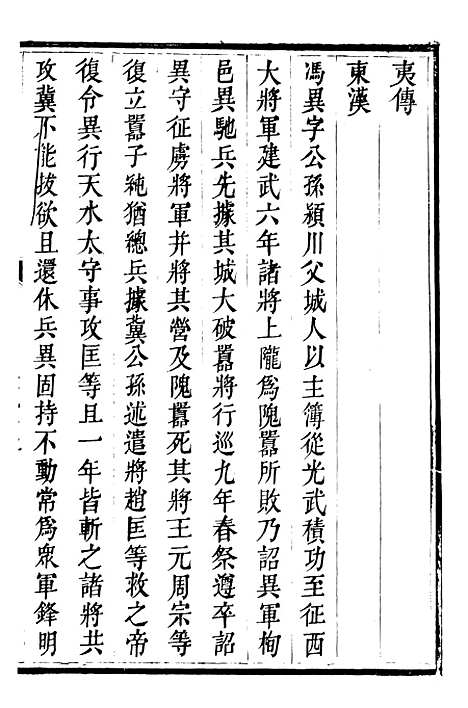 夷傳
東漢
馮異字公孫潁川父城人以主簿從光武積功至征西
大將軍建武六年諸將上隴為隗囂所敗乃詔異軍栒
邑異馳兵先據其城大破囂將行巡九年春祭遵卒詔
異守征虜將軍并將其營及隗囂死其將王元周宗等
復立囂子純猶總兵據冀公孫述遣將趙匡等救之帝
復令異行天水太守事攻匡等且一年皆斬之諸將共
攻冀不能拔欲且還休兵異固持不動常為衆軍鋒明